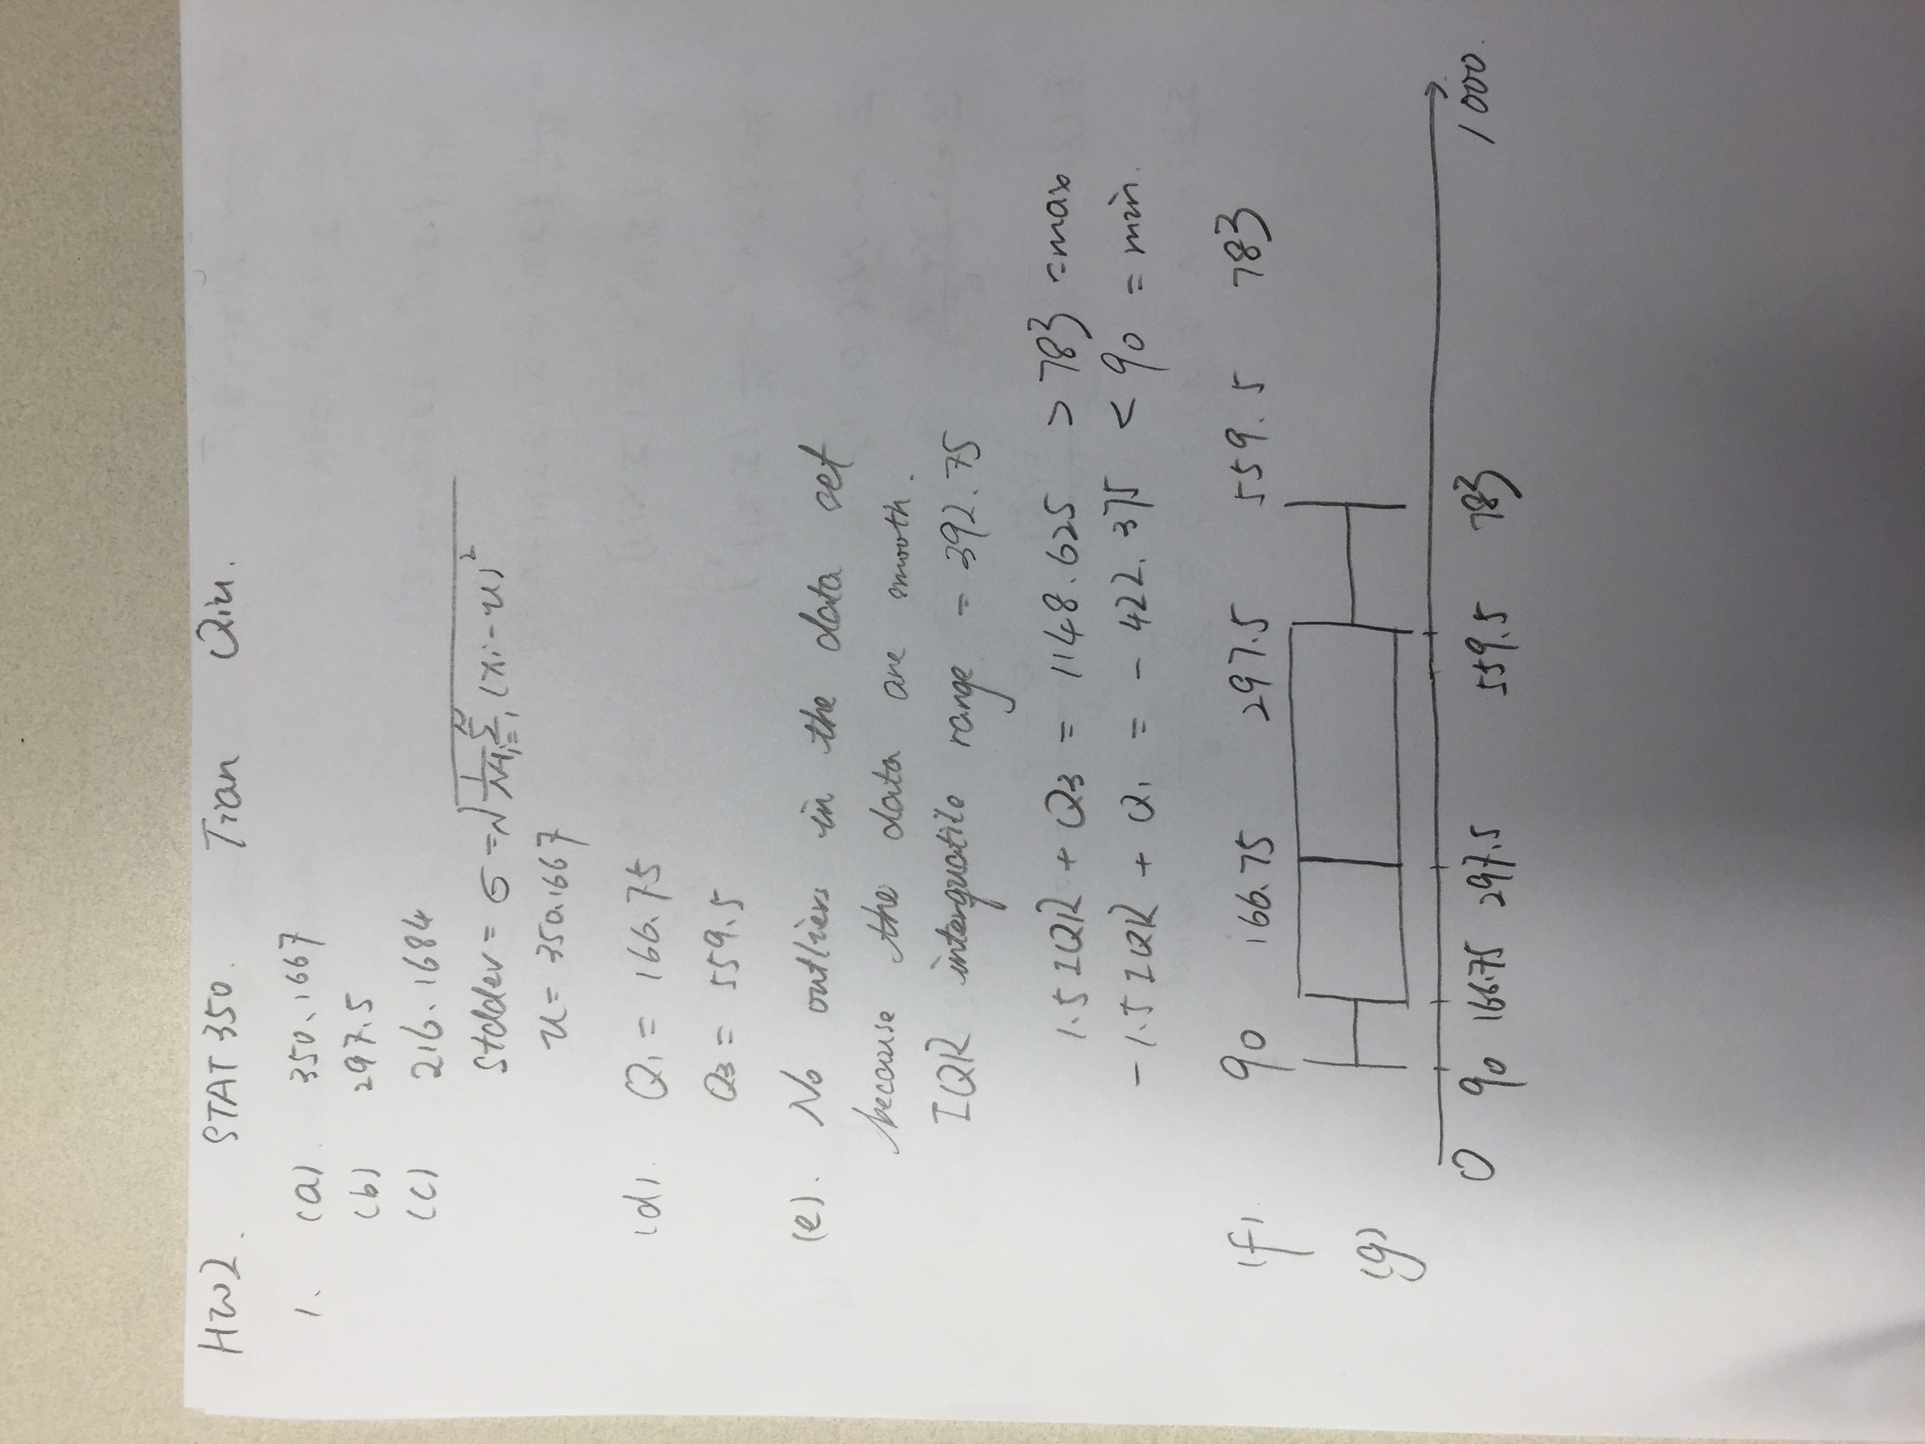 HW2. STAT 350. Tian Qiu.
1. (a) 350.1667
(b) 297.5
(c) 216.1684
stddev = σ = √(1/(N-1) Σ_{i=1}^{N} (xi - u)²)
u = 350.1667
(d). Q1 = 166.75
Q3 = 559.5
(e). No outliers in the data set
because the data are smooth.
IQR interquatile range = 392.75
1.5 IQR + Q3 = 1148.625 > 783 = max
-1.5 IQR + Q1 = -422.375 < 90 = min.
(f). 90 166.75 297.5 559.5 783
(g)
0 90 166.75 297.5 559.5 783 1000.